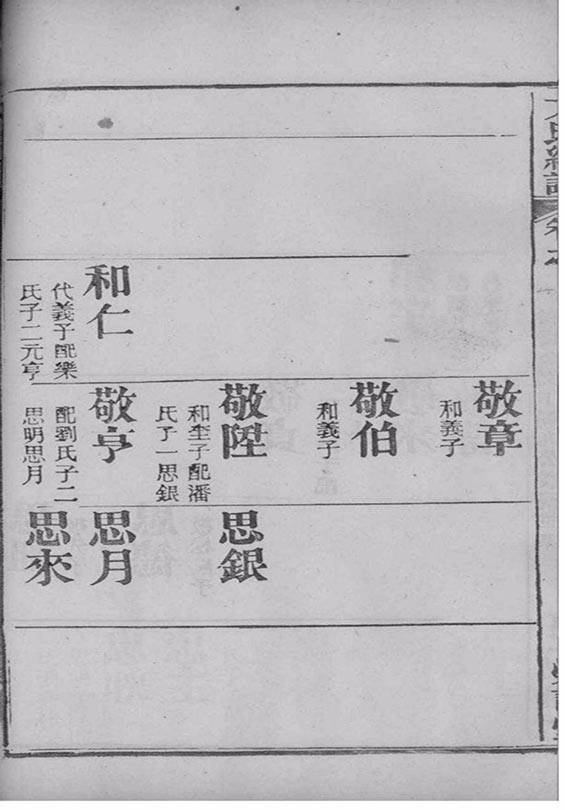 和仁
代義子配樂
氏子二元亨
敬章
和義子
敬伯
和義子
敬陞
和奎子配潘
氏子一思銀
敬亨
配劉氏子二
思明思月
思銀
思月
思來